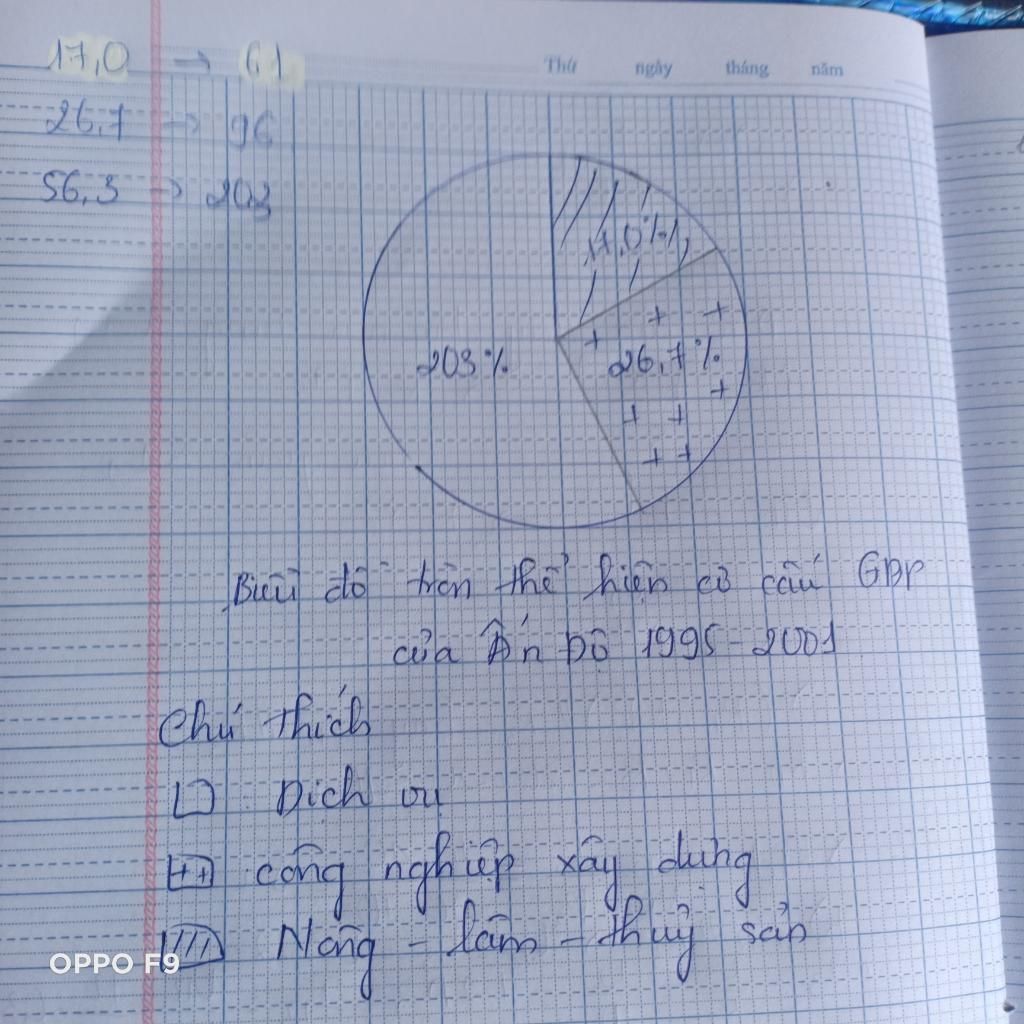 Thứ ngày tháng năm
17,0 → 61
26,7 → 96
56,3 → 203
17,0%
203%
26,7%
Biểu đồ tròn thể hiện cơ cấu GDP
của Ấn Độ 1995-2001
Chú thích
Dịch vụ
công nghiệp xây dựng
Nông - lâm - thuỷ sản
OPPO F9